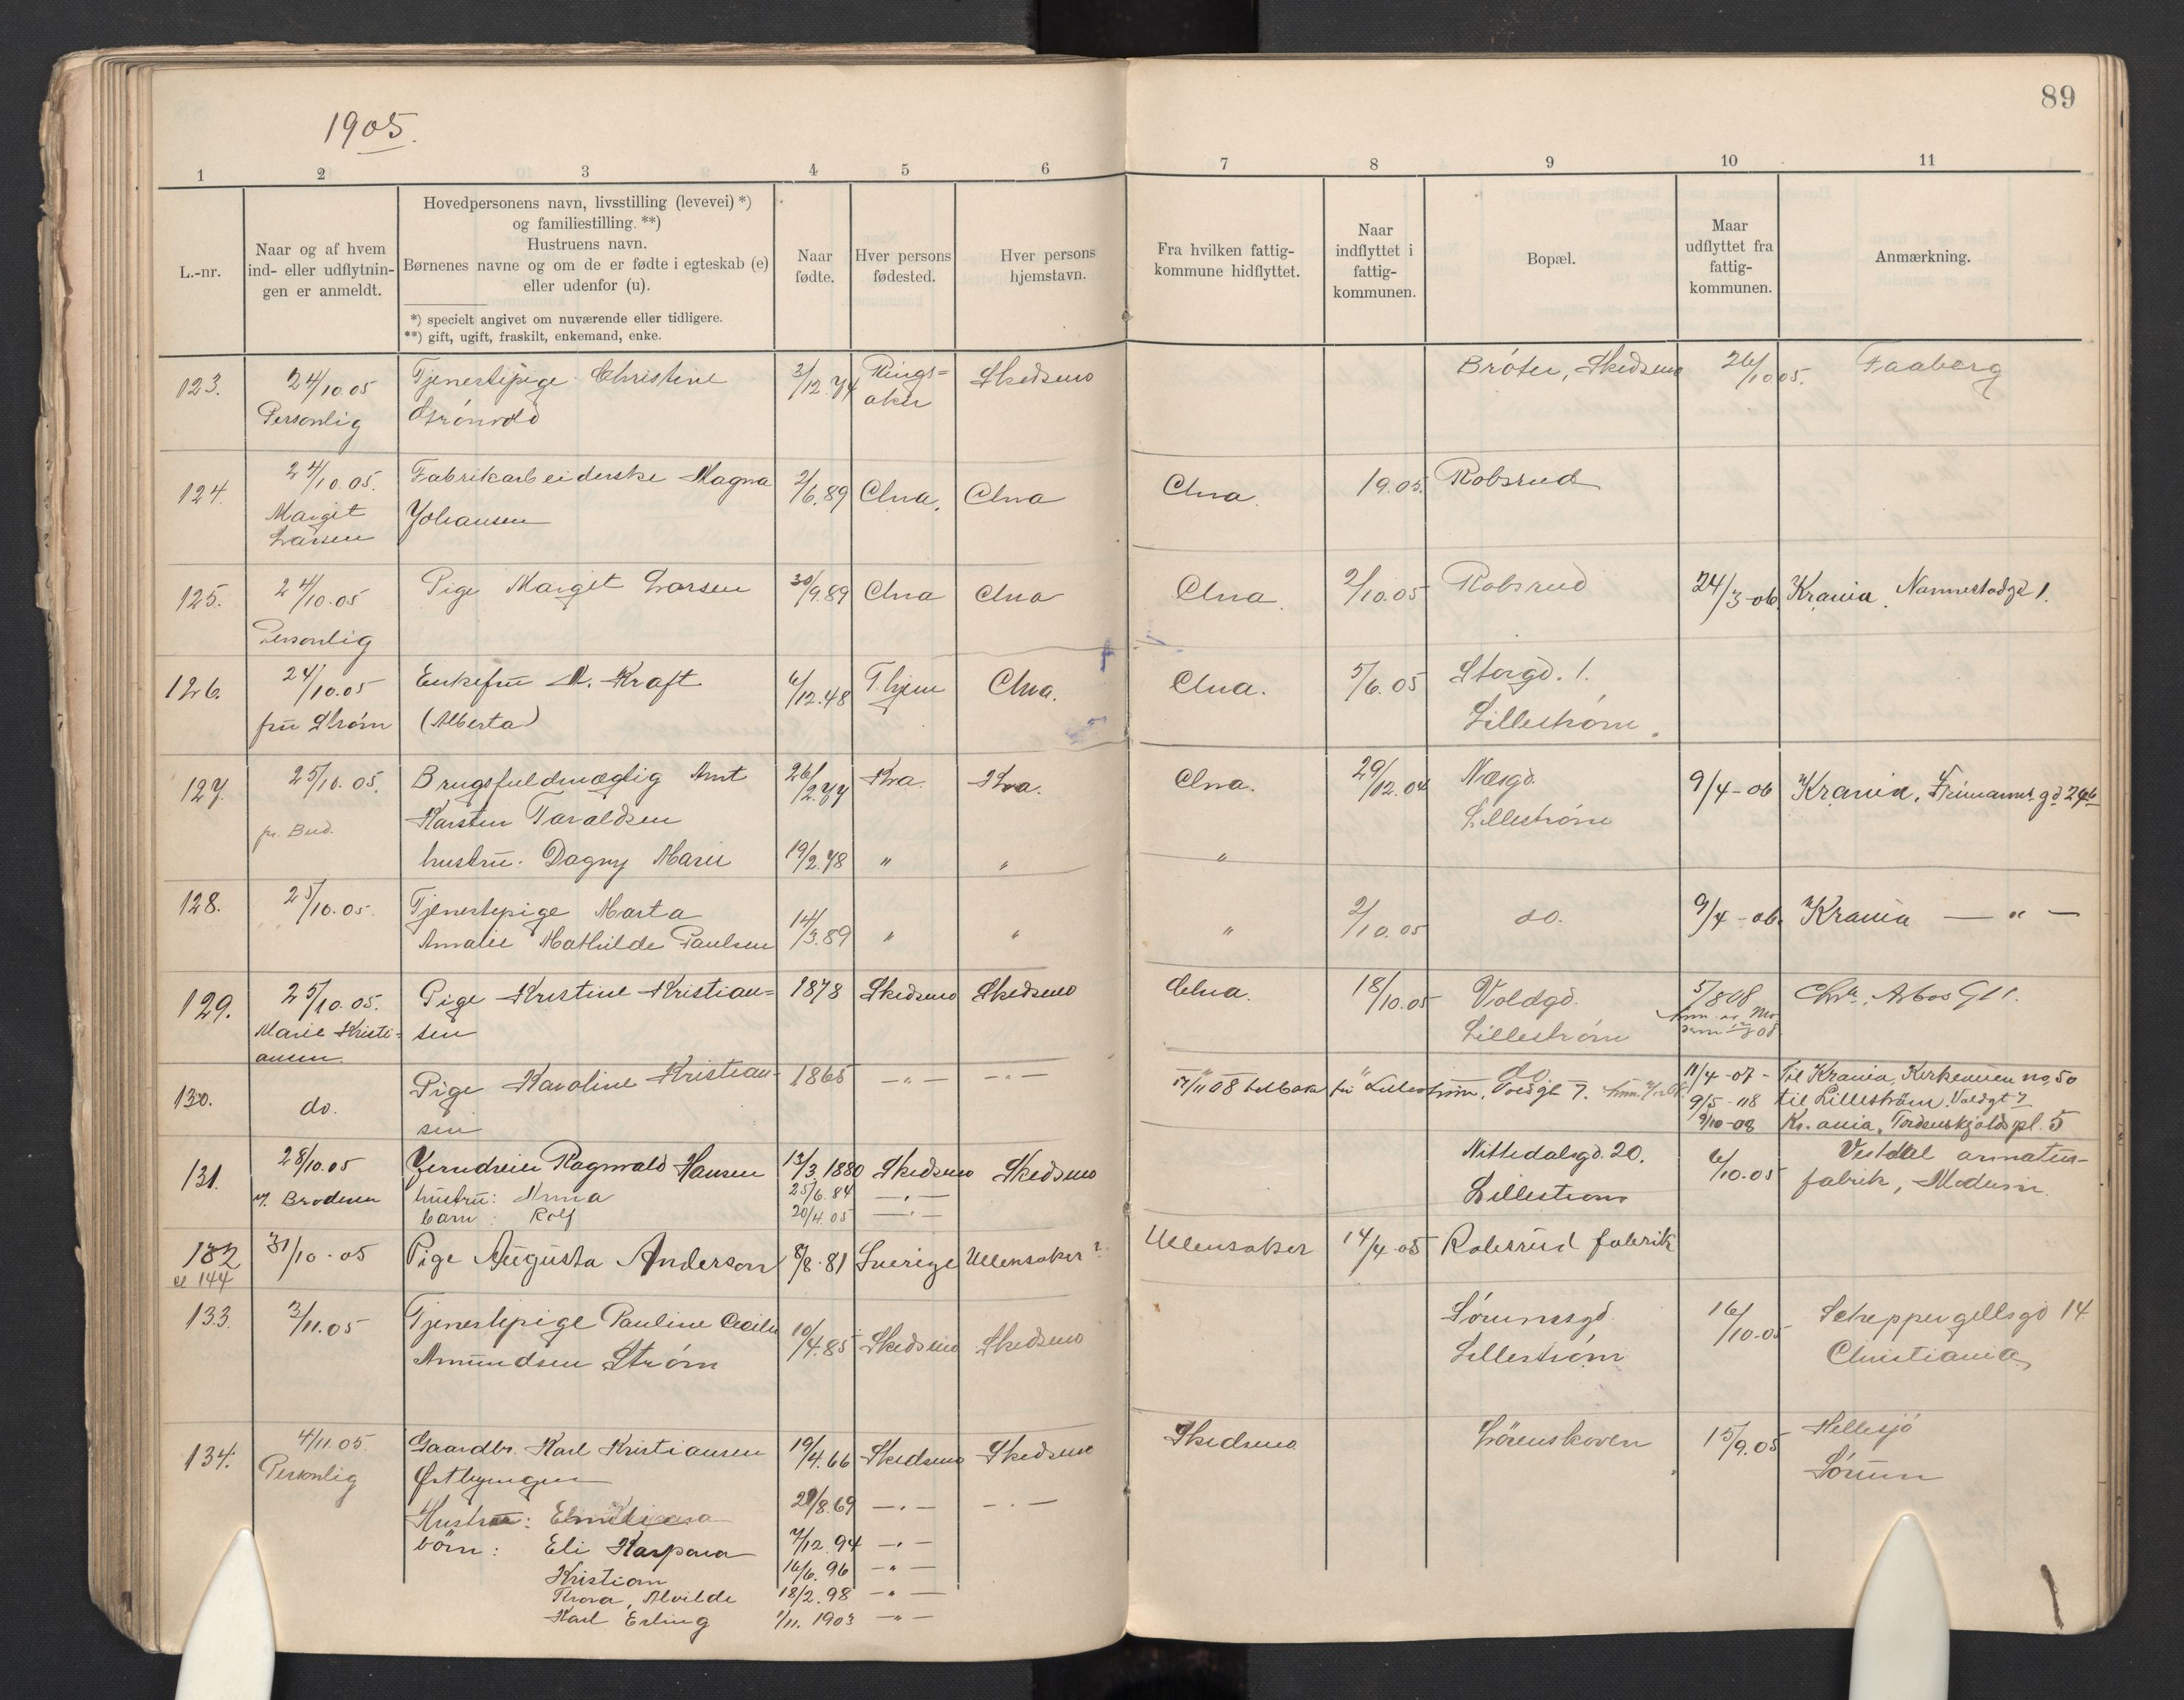 1905.
89
1 2 3 4 5 6 7 8 9 10 11
L.-nr.
Naar og af hvem
ind- eller udflytnin-
gen er anmeldt.
Hovedpersonens navn, livsstilling (levevei) *)
og familiestilling. **)
Hustruens navn.
Børnenes navne og om de er fødte i egteskab (e)
eller udenfor (u).
*) specielt angivet om nuværende eller tidligere.
**) gift, ugift, fraskilt, enkemand, enke.
Naar
fødte.
Hver persons
fødested.
Hver persons
hjemstavn.
Fra hvilken fattig-
kommune hidflyttet.
Naar
indflyttet i
fattig-
kommunen.
Bopæl.
Maar
udflyttet fra
fattig-
kommunen.
Anmærkning.
123. 24/10.05 Tjenestepige Christine 3/12.74 Rings= Skedsmo Bróter, Skedsmo 26/10.05. Faaberg
Personlig Strónvold aker
124. 24/10.05. Fabrikarbeiderske Magna 2/6.89 Chra. Chra Chra. 19.05. Robsrud
Margit Johansen
Larsen
125. 24/10.05 Pige Margit Larsen 30/9.89 Chra Chra Chra. 2/10.05 Robsrud 24/3-06 Krania. Nannestadgd 1.
Personlig
126. 24/10.05 Enkefru M. Kraft 6/12.48 Thjem Chra. Chra. 5/6.05 Storgd. 1.
fru Stróm (Alberta) Lillestróm.
127. 25/10.05. Brugsfuldmægtig Arnt 26/2.77 Kra. Kra. Chra. 29/12.04 Næsgd. 9/4-06 Krania, Frimannsgd 24b
pr. Bud. Karsten Taraldsen Lillestróm
hustru: Dagny Marie 19/2.78 " " "
128. 25/10.05. Tjenestepige Marta 14/3.89 " " " 2/10.05 do. 9/4-06. Krania — " —
Amalie Mathilde Paulsen
129. 25/10.05. Pige Kristine Kristian= 1878 Skedsmo Skedsmo Chra. 18/10.05 Voldgd. 5/8 08 Chra. Arbos Gt 1.
Marie Kristi= sen Lillestróm
ansen
130. do. Pige Karoline Kristian- 1865 — " — — " — do. 11/4-07- Til Krania, Kirkeveien no 50
sen 17/11 08 tilbake fra Lillestrøm, Voldgt 7. 9/5-08 til Lilleström. Voldgt 7
9/10-08 Kr.ania, Tordenskjolds pl. 5
131. 28/10.05 Jerndreier Ragnvald Hansen 13/3.1880 Skedsmo Skedsmo Nittedalsgd. 20. 6/10.05 Vestdal armatur-
v. Broderen hustru: Anna 25/6.84 — " — Lillestrom fabrik, Modum.
barn: Rolf 20/4.05 — " —
132 31/10-05 Pige Augusta Anderson 8/8.81 Sverige Ullensaker? Ullensaker 14/4-05 Robsrud fabrik
cl 144
133. 3/11.05 Tjenestepige Pauline Cecilie 10/4.85 Skedsmo Skedsmo Sórumsgd. 16/10-05 Scheppegellsgd 14.
Amundsen Stróm Lillestróm Christiania
134. 4/11.05. Gaardbr. Karl Kristiansen 19/4.66 Skedsmo Skedsmo Skedsmo Lörenskoven 15/9.05 Hellesjó
Personlig Østbyengen Sórum
Hustru: 29/8.69 — " — — " —
börn: Eli Kaspara 7/12.94 — " —
Kristian 16/6.96 — " —
Thora, Alvilde 18/2.98 — " —
Karl Erling 1/11.1903 — " —